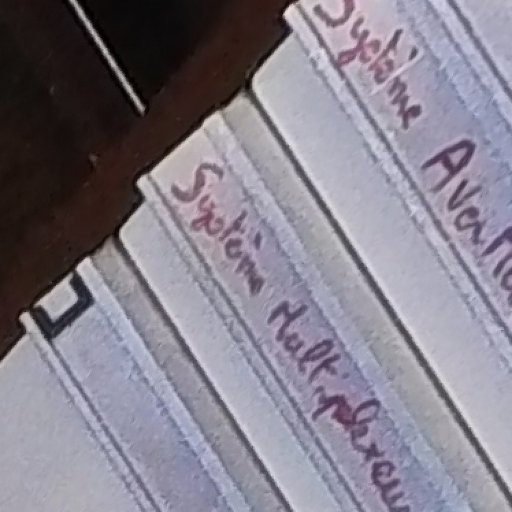 Système
Système Multiplexeu